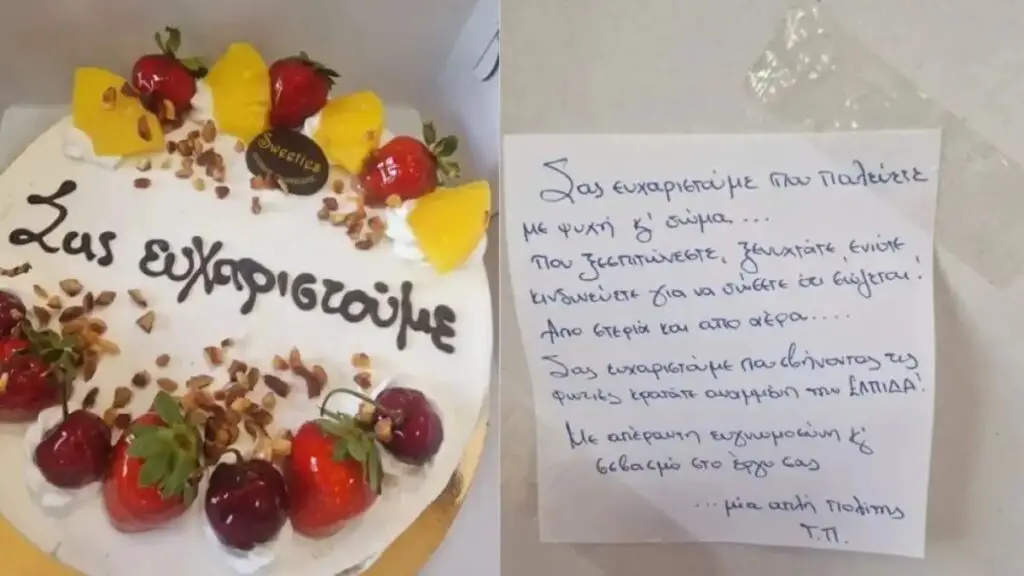 Σας ευχαριστούμε
Sweeties
Σας ευχαριστούμε που παλεύετε
με ψυχή κ' σώμα...
που ξεσπιτώνεστε, ξενυχτάτε, ενίοτε
κινδυνεύετε για να σώσετε ότι σώζεται!
Απο στεριά και απο αέρα....
Σας ευχαριστούμε που σβήνοντας τις
φωτιές κρατάτε αναμμένη την ΕΛΠΙΔΑ!
Με απέραντη ευγνωμοσύνη κ'
σεβασμό στο έργο σας
...μία απλή πολίτης
Τ.Π.